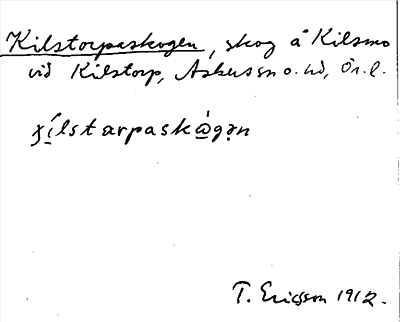 Kilstorpaskogen, skog å Kilsmo
vid Kilstorp, Askers sn o. hd, Ör. l.
ɣí̲lstarpask@̲́gən
T. Ericsson 1912.